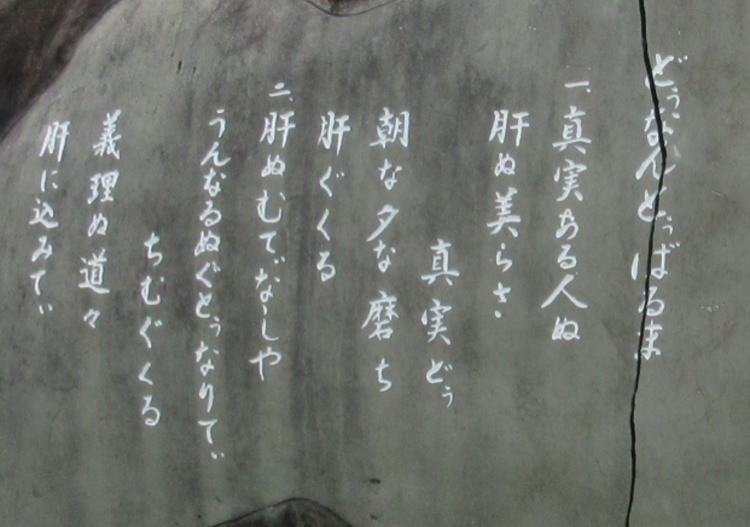 どぅなんとぅばるま
一、真実ある人ぬ
肝ぬ美らさ
真実どぅ
朝な夕な磨ち
肝ぐくる
二、肝ぬむてぃなしや
うんなるぬぐとぅなりてぃ
ちむぐくる
義理ぬ道々
肝に込みてぃ